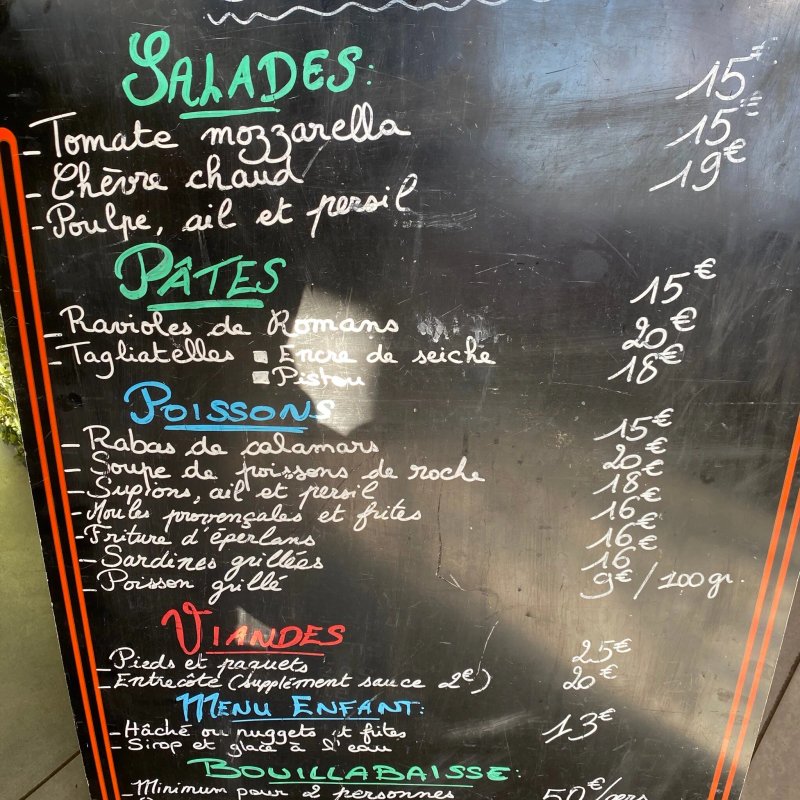 SALADES:
- Tomate mozzarella 15€
- Chèvre chaud 15€
- Poulpe, ail et persil 19€
PÂTES
- Ravioles de Romans 15€
- Tagliatelles ▪ Encre de seiche 20€
▪ Pistou 18€
POISSONS
- Rabas de calamars 15€
- Soupe de poissons de roche 20€
- Supions, ail et persil 18€
- Moules provençales et frites 16€
- Friture d'éperlans 16€
- Sardines grillées 16
- Poisson grillé 9€/100gr.
VIANDES
- Pieds et paquets 25€
- Entrecôte (supplément sauce 2€) 20€
MENU ENFANT:
- Hâché ou nuggets et frites 13€
- Sirop et glace à l'eau
BOUILLABAISSE:
- Minimum pour 2 personnes 50€/pers